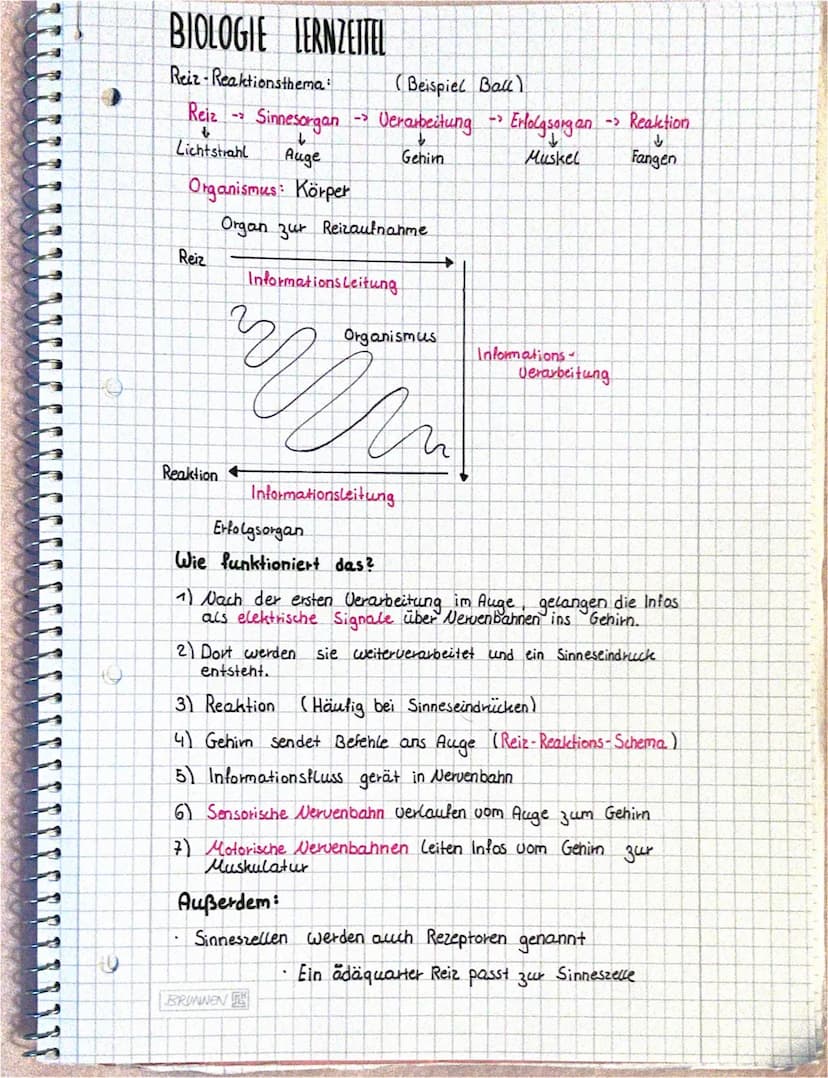 BIOLOGIE LERNZETTEL
Reiz-Reaktionsthema: (Beispiel Ball)
Reiz -> Sinnesorgan -> Verarbeitung -> Erfolgsorgan -> Reaktion
Lichtstrahl Auge Gehirn Muskel Fangen
Organismus: Körper
Organ zur Reizaufnahme
Reiz
Informationsleitung
Organismus
Informations-
verarbeitung
Reaktion
Informationsleitung
Erfolgsorgan
Wie funktioniert das?
1) Nach der ersten Verarbeitung im Auge, gelangen die Infos
als elektrische Signale über Nervenbahnen ins Gehirn.
2) Dort werden sie weiterverarbeitet und ein Sinneseindruck
entsteht.
3) Reaktion (Häufig bei Sinneseindrücken)
4) Gehirn sendet Befehle ans Auge (Reiz-Reaktions-Schema)
5) Informationsfluss gerät in Nervenbahn
6) Sensorische Nervenbahn verlaufen vom Auge zum Gehirn
7) Motorische Nervenbahnen leiten Infos vom Gehirn zur
Muskulatur
Außerdem:
· Sinneszellen werden auch Rezeptoren genannt
· Ein ädäquarter Reiz passt zur Sinneszelle
BRUNNEN